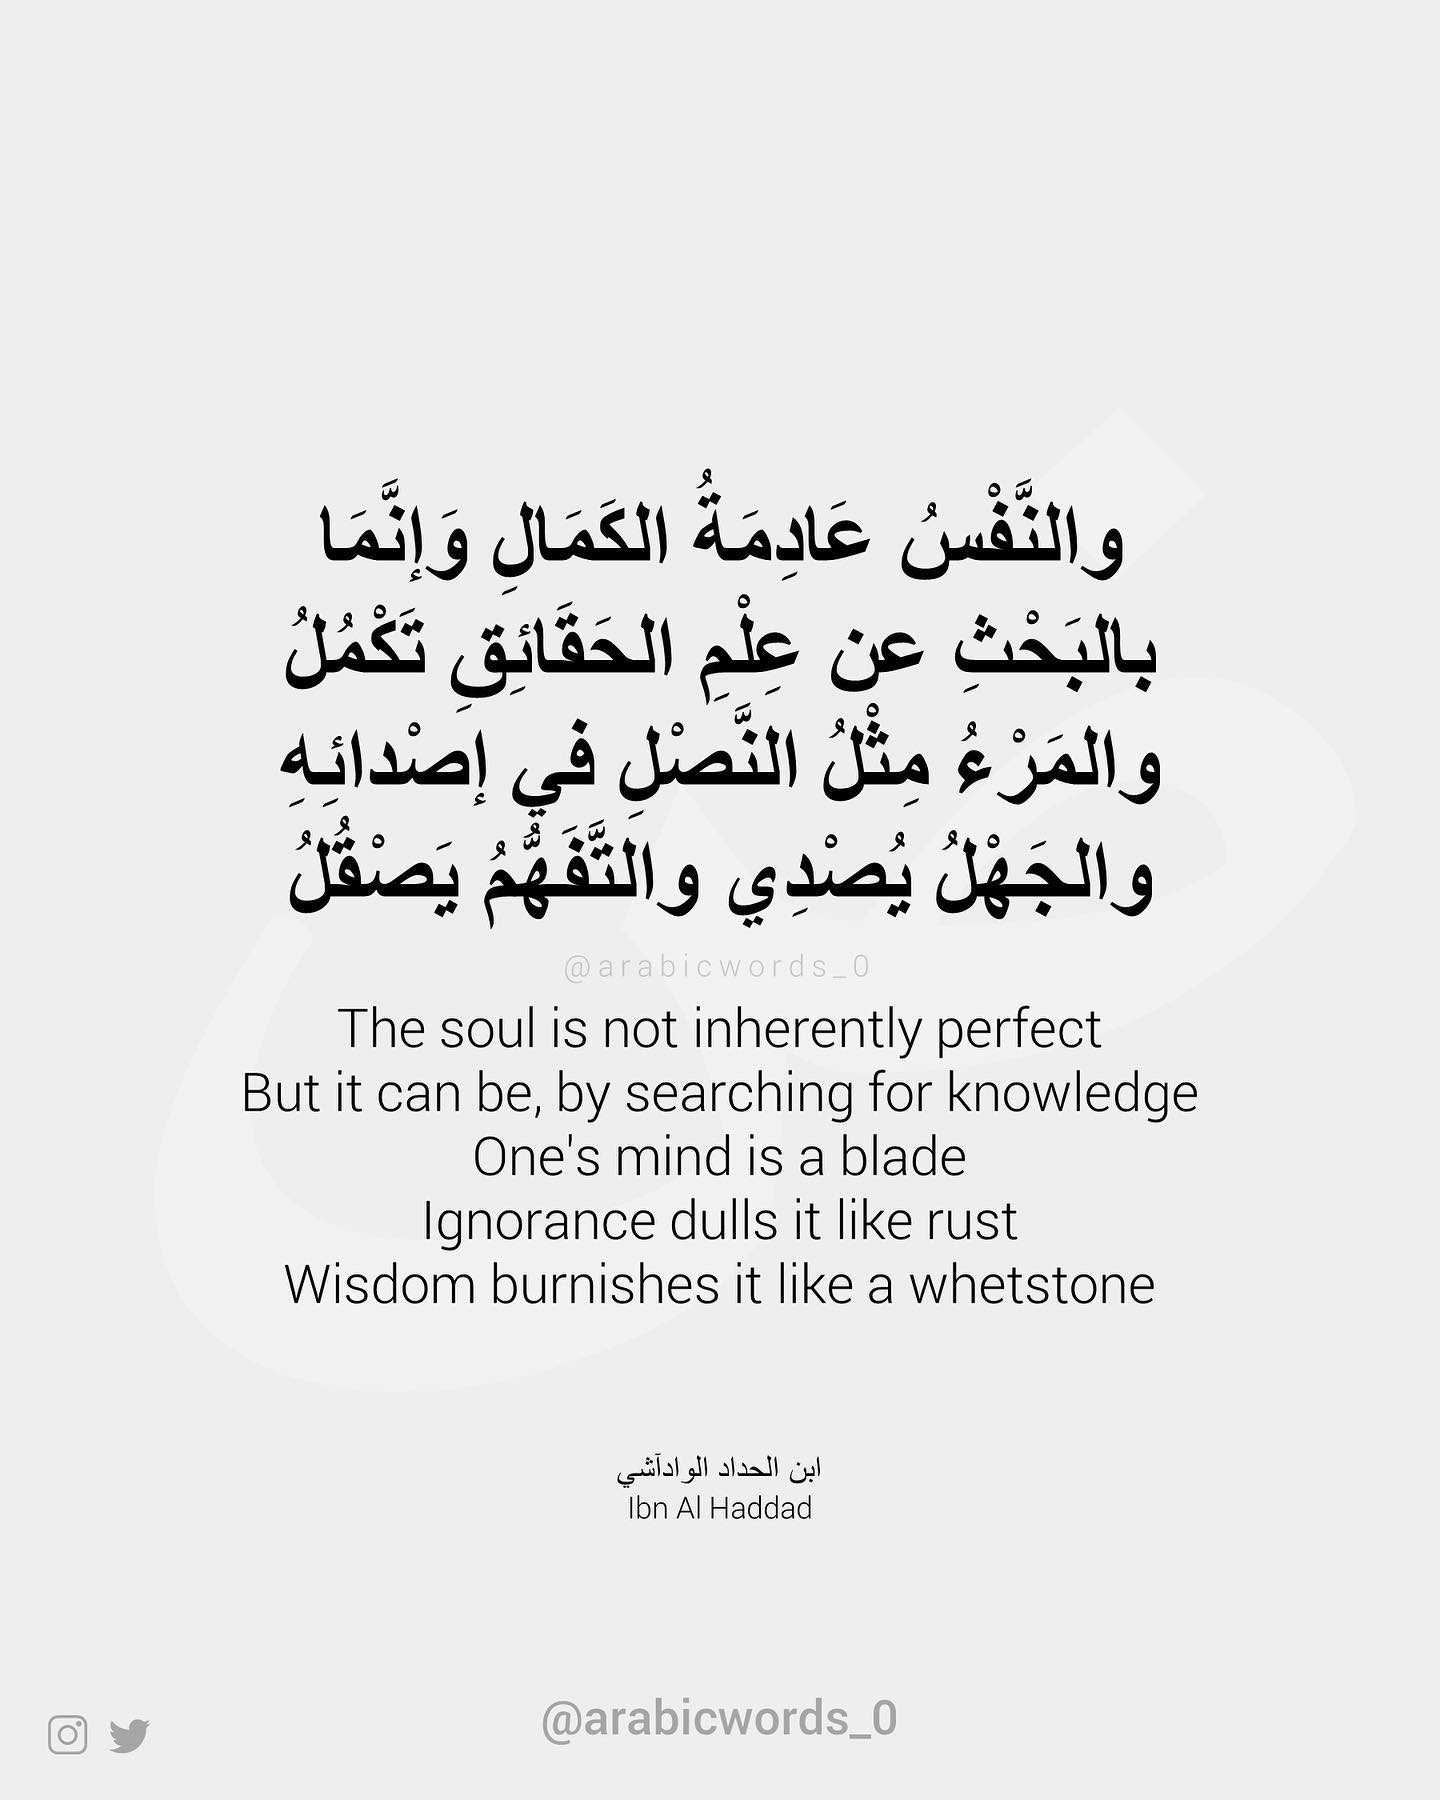 والنَّفْسُ عَادِمَةُ الكَمَالِ وَإنَّمَا
بالبَحْثِ عن عِلْمِ الحَقَائِقِ تَكْمُلُ
والمَرْءُ مِثْلُ النَّصْلِ في إصْدائِهِ
والجَهْلُ يُصْدِي والتَّفَهُّمُ يَصْقُلُ
@arabicwords_0
The soul is not inherently perfect
But it can be, by searching for knowledge
One's mind is a blade
Ignorance dulls it like rust
Wisdom burnishes it like a whetstone
ابن الحداد الوادآشي
Ibn Al Haddad
@arabicwords_0